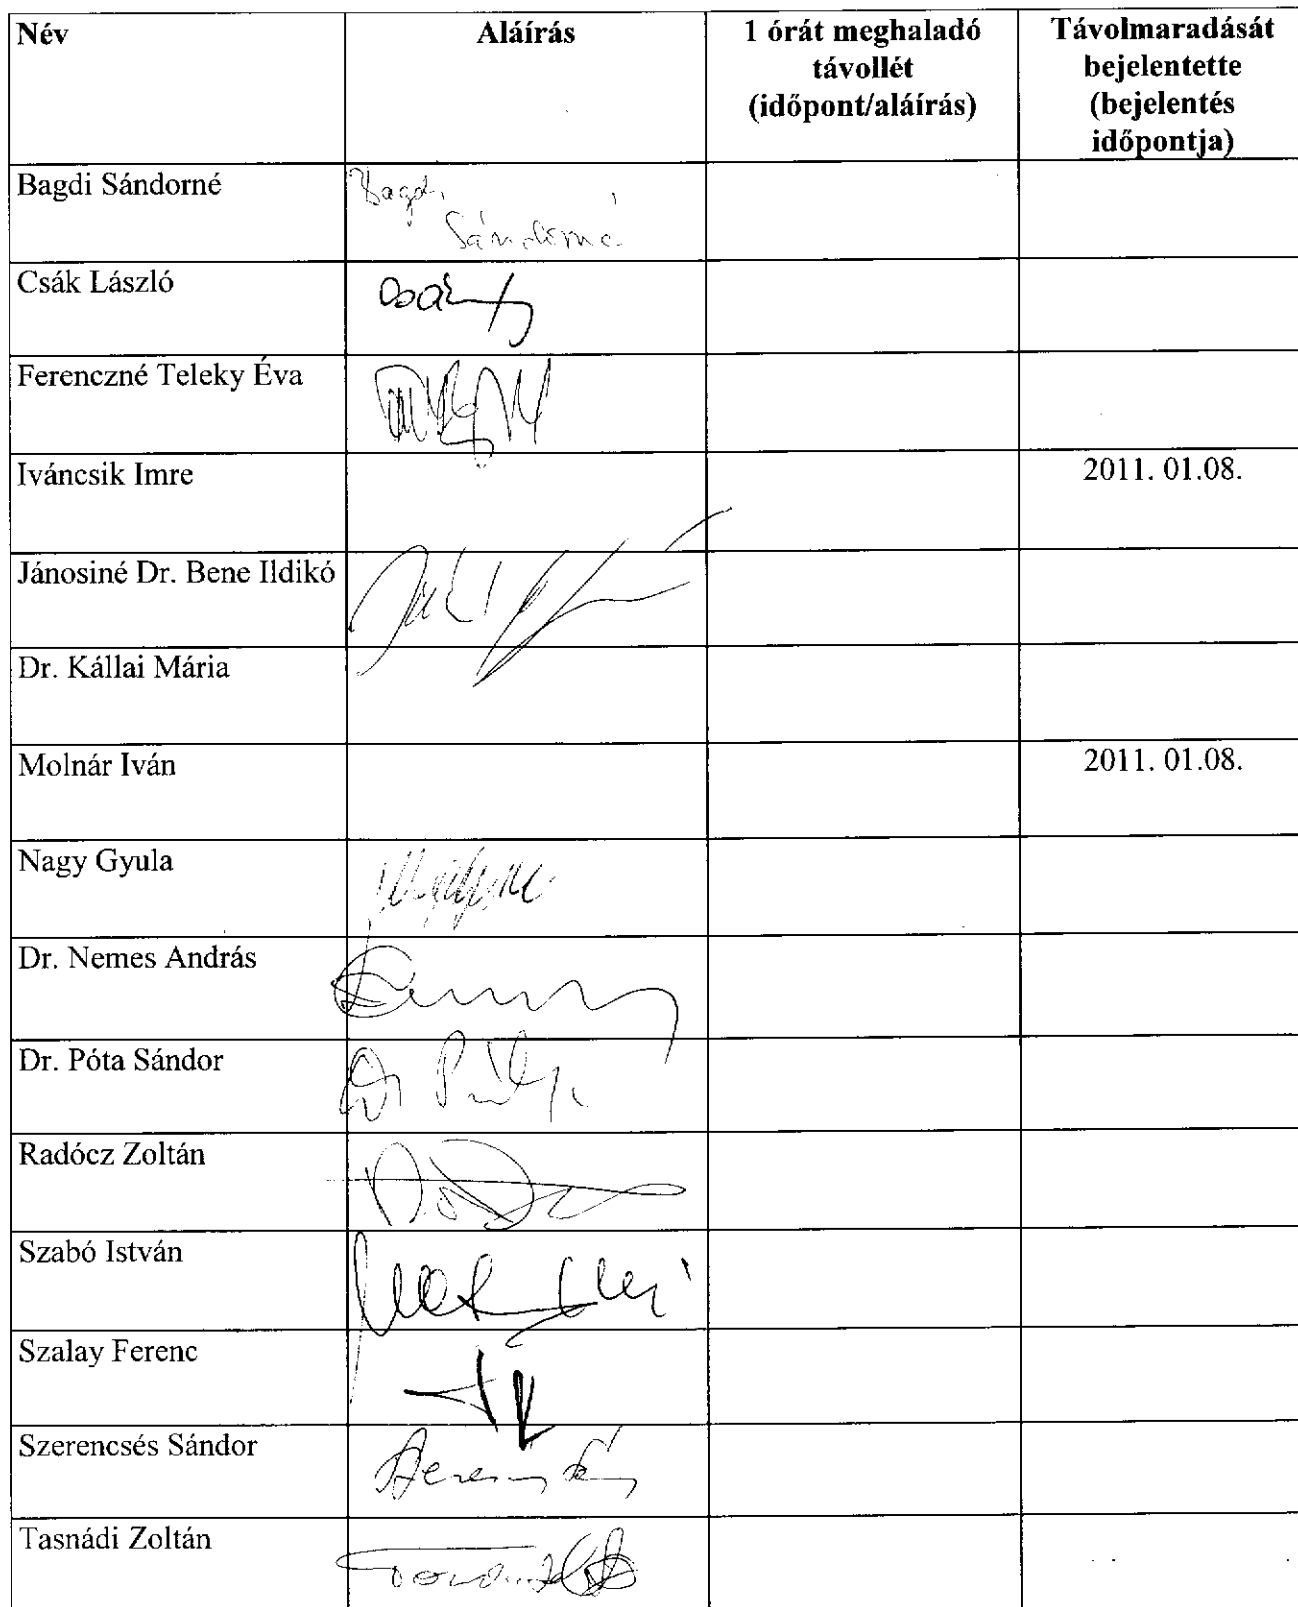 Név
Aláírás
1 órát meghaladó
távollét
(időpont/aláírás)
Távolmaradását
bejelentette
(bejelentés
időpontja)
Bagdi Sándorné
Bagdi
Sándorné
Csák László
Ferenczné Teleky Éva
Iváncsik Imre
2011. 01.08.
Jánosiné Dr. Bene Ildikó
Dr. Kállai Mária
Molnár Iván
2011. 01.08.
Nagy Gyula
Dr. Nemes András
Dr. Póta Sándor
Radócz Zoltán
Szabó István
Szalay Ferenc
Szerencsés Sándor
Tasnádi Zoltán